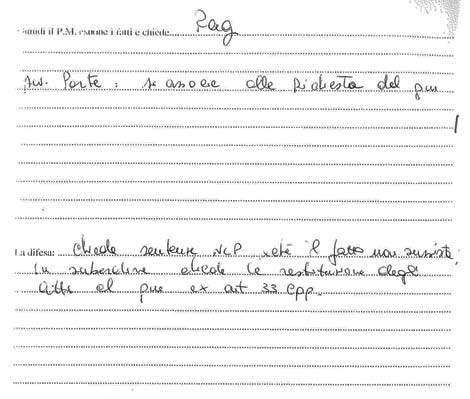 Quindi il P.M. espone i fatti e chiede
Avv. Parte: si associa alle richiesta del pm
La difesa: chiede sentenza NLP perché il fatto non sussiste;
in subordine chiede la restituzione degli
atti al pm ex art 33 cpp.